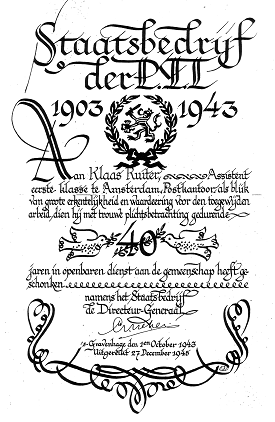 Staatsbedrijf
der P.T.T.
1903 1943
Aan Klaas Ruiter, Assistent
eerste klasse te Amsterdam, Postkantoor, als blijk
van groote erkentelijkheid en waardeering voor den toegewijden
arbeid, dien hij met trouwe plichtsbetrachting gedurende
40
jaren in openbaren dienst aan de gemeenschap heeft ge-
schonken
namens het Staatsbedrijf
de Directeur-Generaal,
's-Gravenhage den 1en October 1943
Uitgereikt 27 December 1945